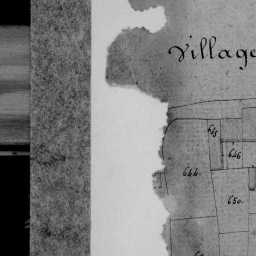 Village
645
646
644.
650.